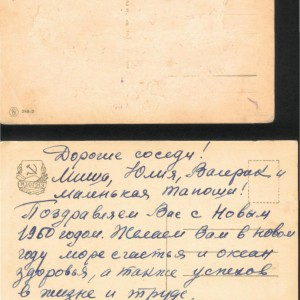 Дорогие соседи!
Миша, Юлия, Валерик и
маленькая Тапоши!
Поздравляем Вас с Новым
1960 годом. Желаем Вам в новом
году море счастья и океан
здоровья, а также успехов
в жизне и труде.